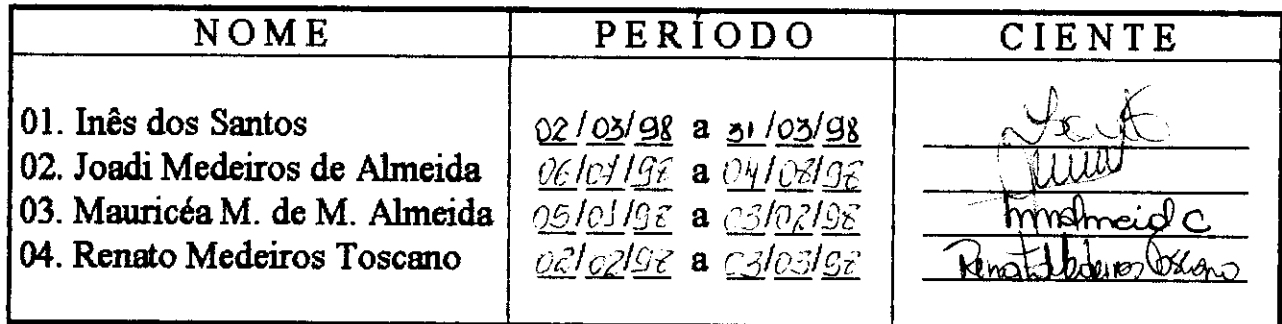 NOME PERÍODO CIENTE
01. Inês dos Santos 02/03/98 a 31/03/98
02. Joadi Medeiros de Almeida 06/07/98 a 04/08/98
03. Mauricéa M. de M. Almeida 05/01/98 a 03/02/98 mmalmeida
04. Renato Medeiros Toscano 02/02/98 a 03/03/98 Renato Medeiros Toscano